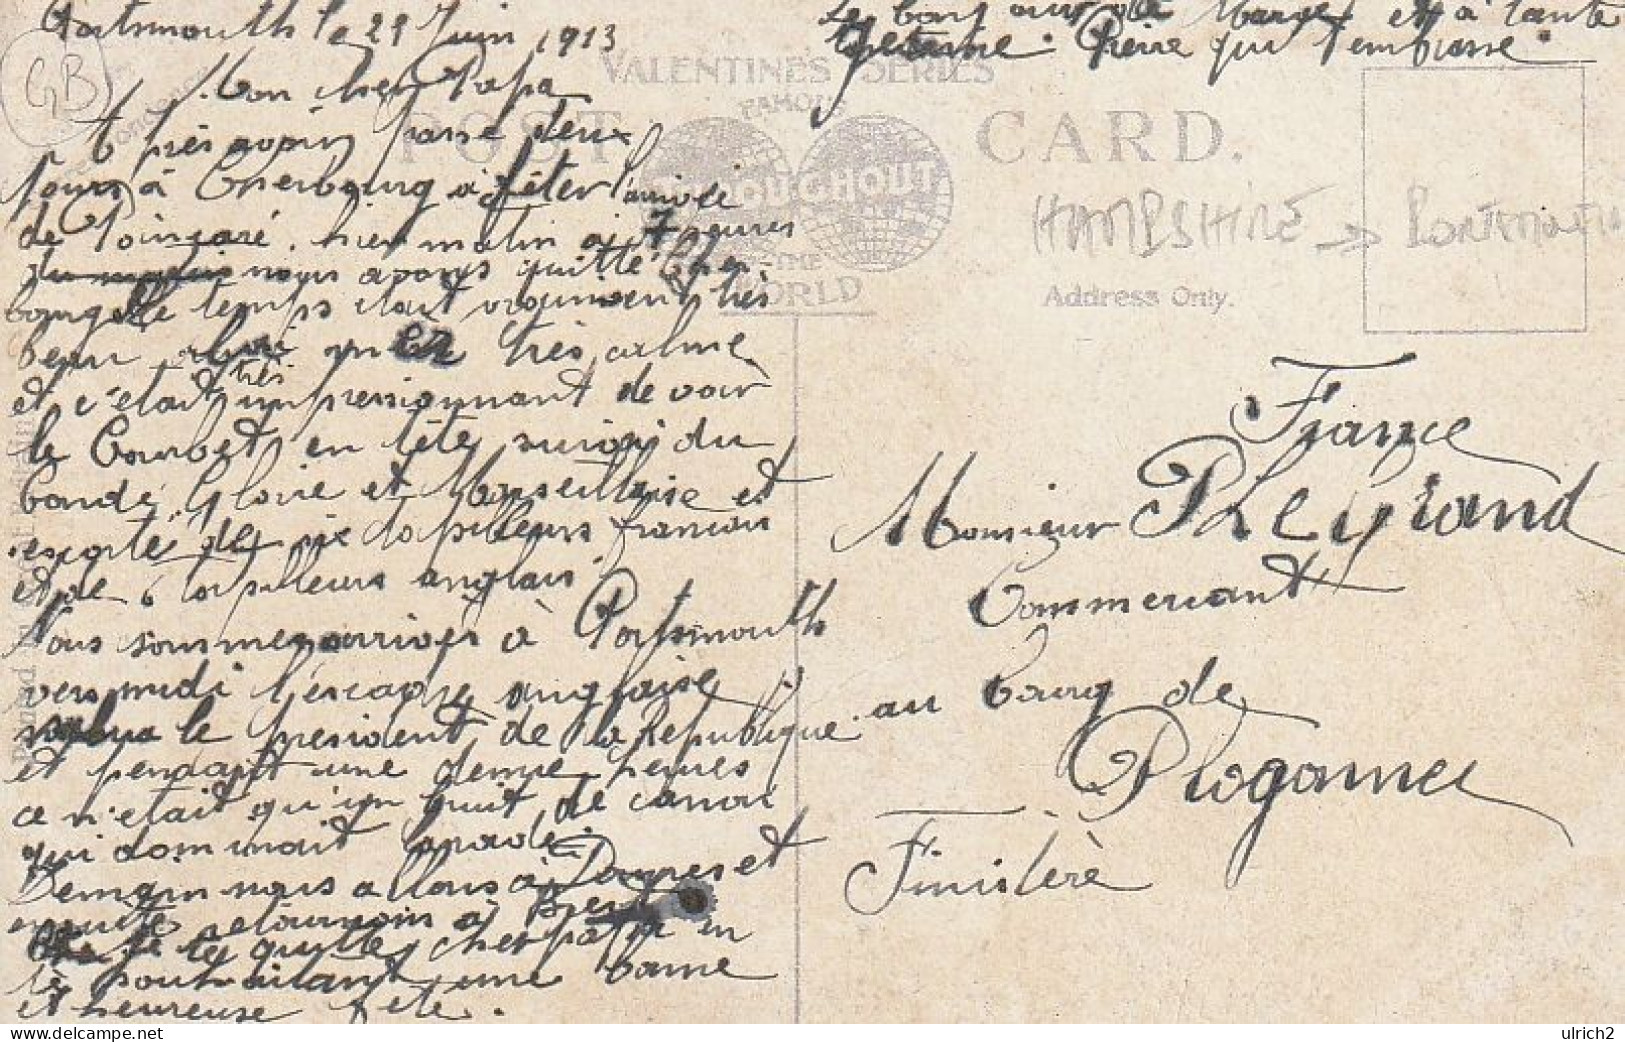 Portsmouth le 29 Juin 1913
Mon cher Papa
Après avoir passé deux
jours à Cherbourg à fêter l'arrivée
de Poincaré. hier matin à 7 heures
nous avons quitté Cher-
bourg le temps était vraiment très
beau très calme
et c'était très impressionnant de voir
le Courbet en tête suivi du
Condé, Gloire et Marseillaise et
escorté de six torpilleurs français
et de 6 torpilleurs anglais.
Nous sommes arrivés à Portsmouth
vers midi l'escadre anglaise
salua le président de la République
et pendant une demie heures
ce n'était qu'un bruit de canon
qui dominait la rade.
Demain nous allons à Douvres et
ensuite retournons à Brest
je te quitte cher papa en
te souhaitant une bonne
et heureuse fête.
Le bonjour de Marges et à tante
Pierre qui t'embrasse.
GB
VALENTINES SERIES
FAMOUS
POST CARD.
THROUGHOUT
THE
WORLD
HAMPSHIRE → PORTSMOUTH
Address Only.
France
Monsieur P Legrand
Commercant
au bourg de
Plogonnec
Finistère
ulrich2